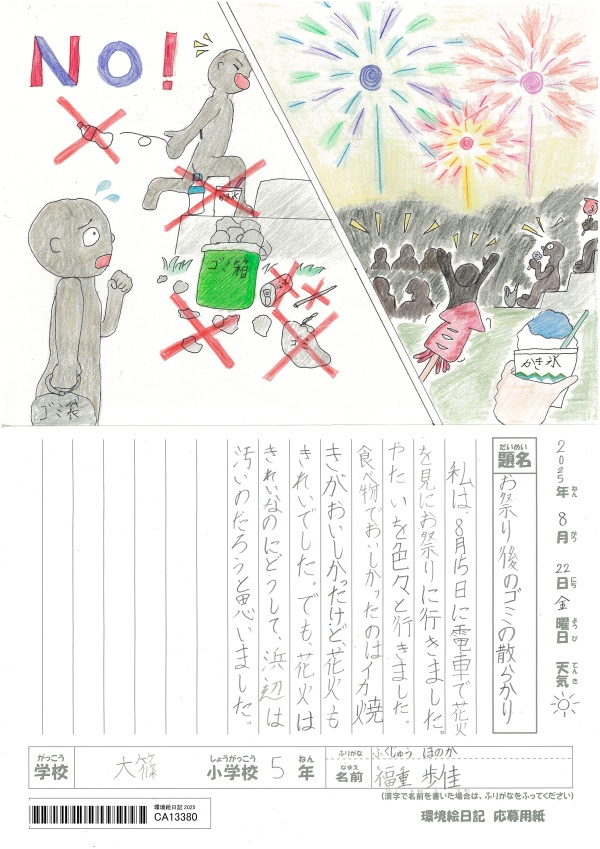 No!
かき氷
ゴミ箱
ゴミ袋
かき氷
2025年 8月 22日 金曜日 天気
ねん がつ にち ようび てんき
だいめい
題名
お祭り後のゴミの散らかり
私は、8月15日に電車で花火
を見にお祭りに行きました。
やたいを色々と行きました。
食べ物でおいしかったのはイカ焼
きがおいしかったけど、花火も
きれいでした。でも、花火は
きれいなのにどうして、浜辺は
汚いのだろうと思いました。
がっこう しょうがっこう ねん
学校 大篠 小学校 5年
ふりがな ふくじゅう ほのか
なまえ
名前 福重 歩佳
(漢字で名前を書いた場合は、ふりがなをふってください)
環境絵日記 2025
CA13380
環境絵日記 応募用紙